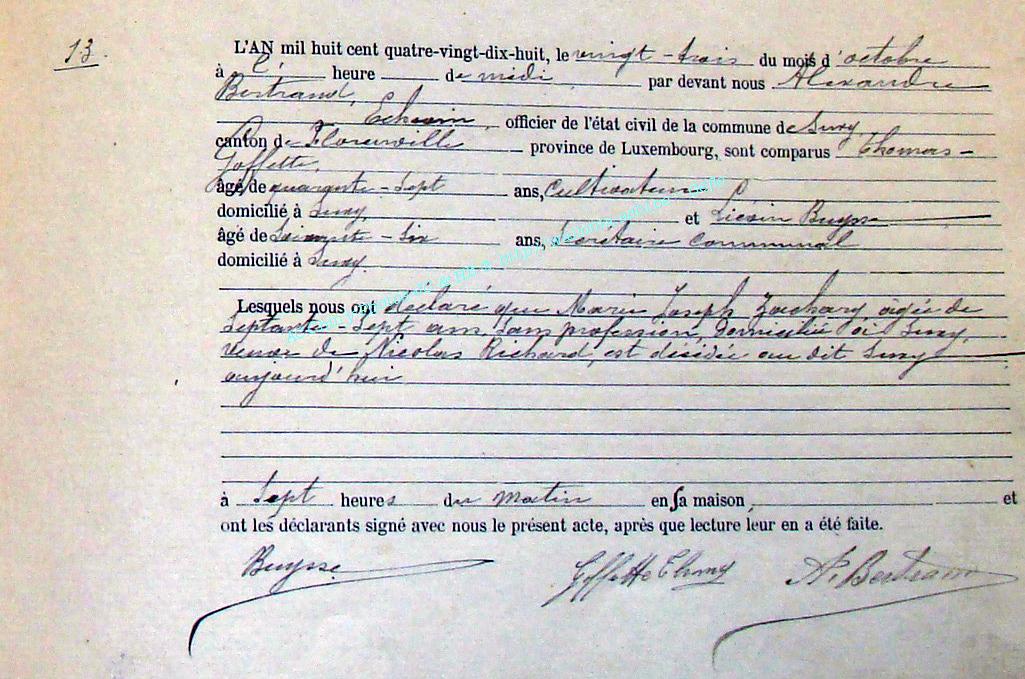 13.
L'AN mil huit cent quatre-vingt-dix-huit, le vingt-trois du mois d'octobre
à heure de midi par devant nous Alexandre
Bertrand,
Echevin, officier de l'état civil de la commune de Suxy
canton de Florenville province de Luxembourg, sont comparus Thomas-
Goffette,
âgé de quarante-sept ans, Cultivateur
domicilié à Suxy, et Liévin Buysse
âgé de soixante-six ans, Secrétaire Communal
domicilié à Suxy.
Lesquels nous ont déclaré que Marie Joseph Zachary, âgée de
Septante-Sept ans, Sans profession, domiciliée à Suxy,
veuve de Nicolas Richard, est décédée au dit Suxy
aujourd'hui
à Sept heures du matin en sa maison, et
ont les déclarants signé avec nous le présent acte, après que lecture leur en a été faite.
Buysse Goffette A. Bertrand